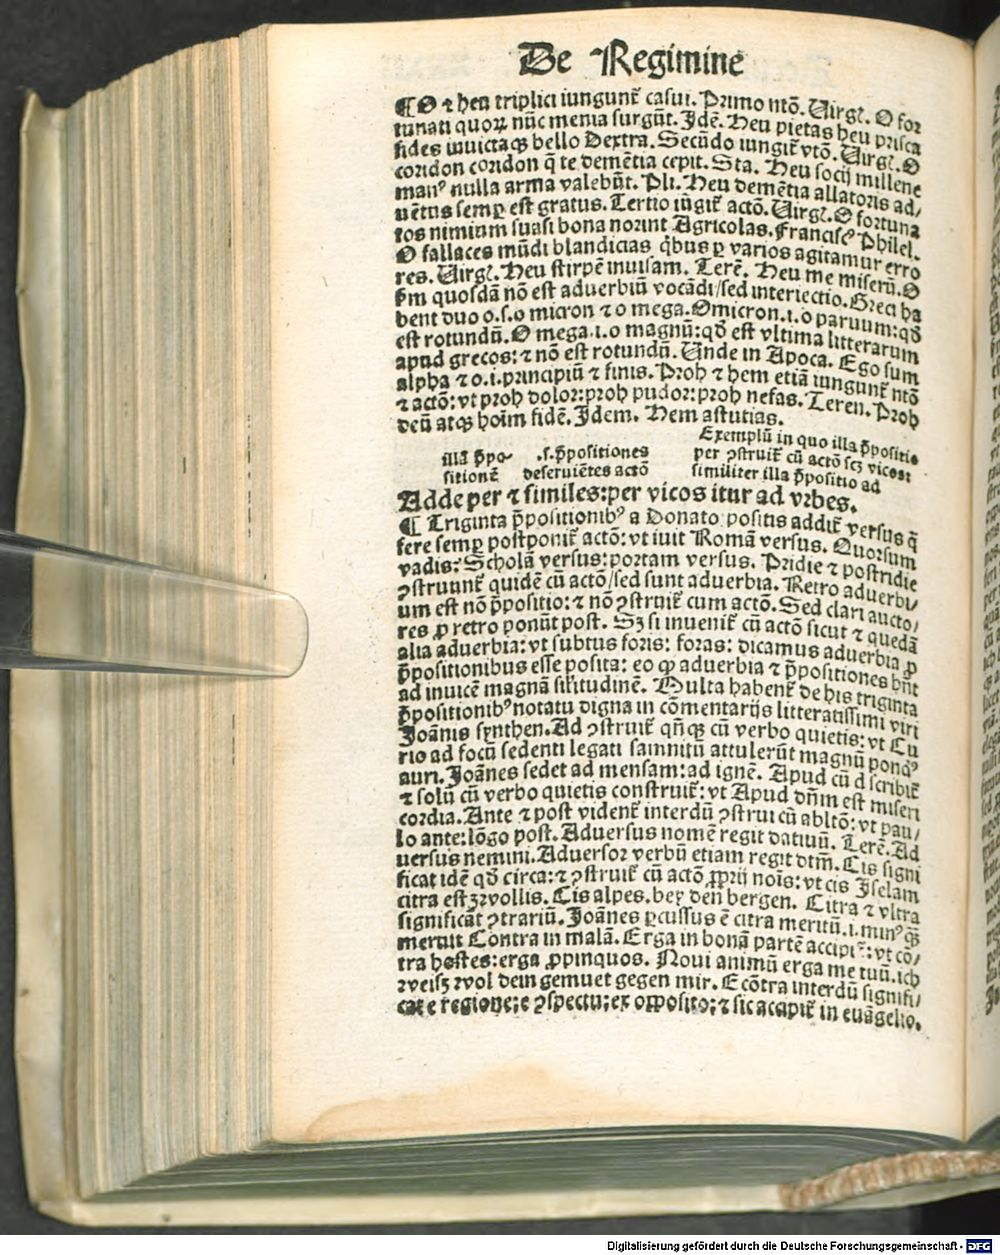 De Regimine
¶ O ⁊ heu triplici iungunt᷑ casui. Primo ntō. Uirgꝭ. O for
tunati quoꝝ nūc menia surgūt. Idē. Heu pietas heu prisca
fides inuictaqꝫ bello Dextra. Secūdo iungit᷑ vtō. Uirgꝭ. O
coridon coridon q̄ te demētia cepit. Sta. Heu socij millene
manꝰ nulla arma valebūt. Pli. Heu demētia allatoris ad/
uētus semꝑ est gratus. Tertio iūgit᷑ actō. Uirgꝭ. O fortuna
tos nimium suasi bona norint Agricolas. Franciscꝰ Philel.
O fallaces mūdi blandicias qͥbus ꝑ varios agitamur erro
res. Uirgꝭ. Heu stirpē inuisam. Terē. Heu me miserū. O
ẜm quosdā nō est aduerbiū vocādi/sed interiectio. Greci ha
bent duo o.s.o micron ⁊ o mega. Omicron.i.o paruum: qd̄
est rotundū. O mega.i.o magnū: qd̄ est vltima litterarum
apud grecos: ⁊ nō est rotundū. Unde in Apoca. Ego sum
alpha ⁊ o.i.principiū ⁊ finis. Proh ⁊ hem etiā iungunt᷑ ntō
⁊ actō: vt proh dolor: proh pudor: proh nefas. Teren. Proh
deū atqꝫ hoim fidē. Idem. Hem astutias.
Exemplū in quo illa p̄positio
illā p̄po- .s.p̄positiones per ꝯstruit᷑ cū actō scꝫ vicos:
sitionē deseruiētes actō similiter illa p̄positio ad
Adde per ⁊ similes: per vicos itur ad vrbes.
¶ Triginta p̄positionibꝰ a Donato positis addit᷑ versus q̄
fere semꝑ postponit᷑ actō: vt iuit Romā versus. Quorsum
vadis? Scholā versus: portam versus. Pridie ⁊ postridie
ꝯstruunt᷑ quidē cū actō/sed sunt aduerbia. Retro aduerbi/
um est nō p̄positio: ⁊ nō ꝯstruit᷑ cum actō. Sed clari aucto/
res ꝓ retro ponūt post. Sꝫ si inuenit᷑ cū actō sicut ⁊ quedā
alia aduerbia: vt subtus foris: foras: dicamus aduerbia ꝓ
p̄positionibus esse posita: eo ꝙ aduerbia ⁊ p̄positiones hn̄t
ad inuicē magnā sil᷑itudinē. Multa habent᷑ de his triginta
p̄positionibꝰ notatu digna in cōmentarijs litteratissimi viri
Joānis synthen. Ad ꝯstruit᷑ qn̄qꝫ cū verbo quietis: vt Cu
rio ad focū sedenti legati samnitū attulerūt magnū pondꝰ
auri. Joānes sedet ad mensam: ad ignē. Apud cū d scribit᷑
⁊ solū cū verbo quietis construit᷑: vt Apud dn̄m est miseri
cordia. Ante ⁊ post vident᷑ interdū ꝯstrui cū abltō: vt pau/
lo ante: lōgo post. Aduersus nomē regit datiuū. Terē. Ad
uersus nemini. Aduersor verbū etiam regit dtm̄. Cis signi
ficat idē qd̄ circa: ⁊ ꝯstruit᷑ cū actō ꝓprij nois: vt cis Iselam
citra est zwollis. Cis alpes. bey den bergen. Citra ⁊ vltra
significāt ꝯtrariū. Joānes ꝑcussus ē citra meritū.i.minꝰ qꝫ
meruit Contra in malā. Erga in bonā partē accipit᷑: vt cō/
tra hostes: erga ꝓpinquos. Noui animū erga me tuū. ich
weisz wol dein gemuet gegen mir. E cōtra interdū signifi/
cat e regione; e ꝯspectu; ex opposito; ⁊ sic accipit᷑ in euāgelio.
Digitalisierung gefördert durch die Deutsche Forschungsgemeinschaft - DFG